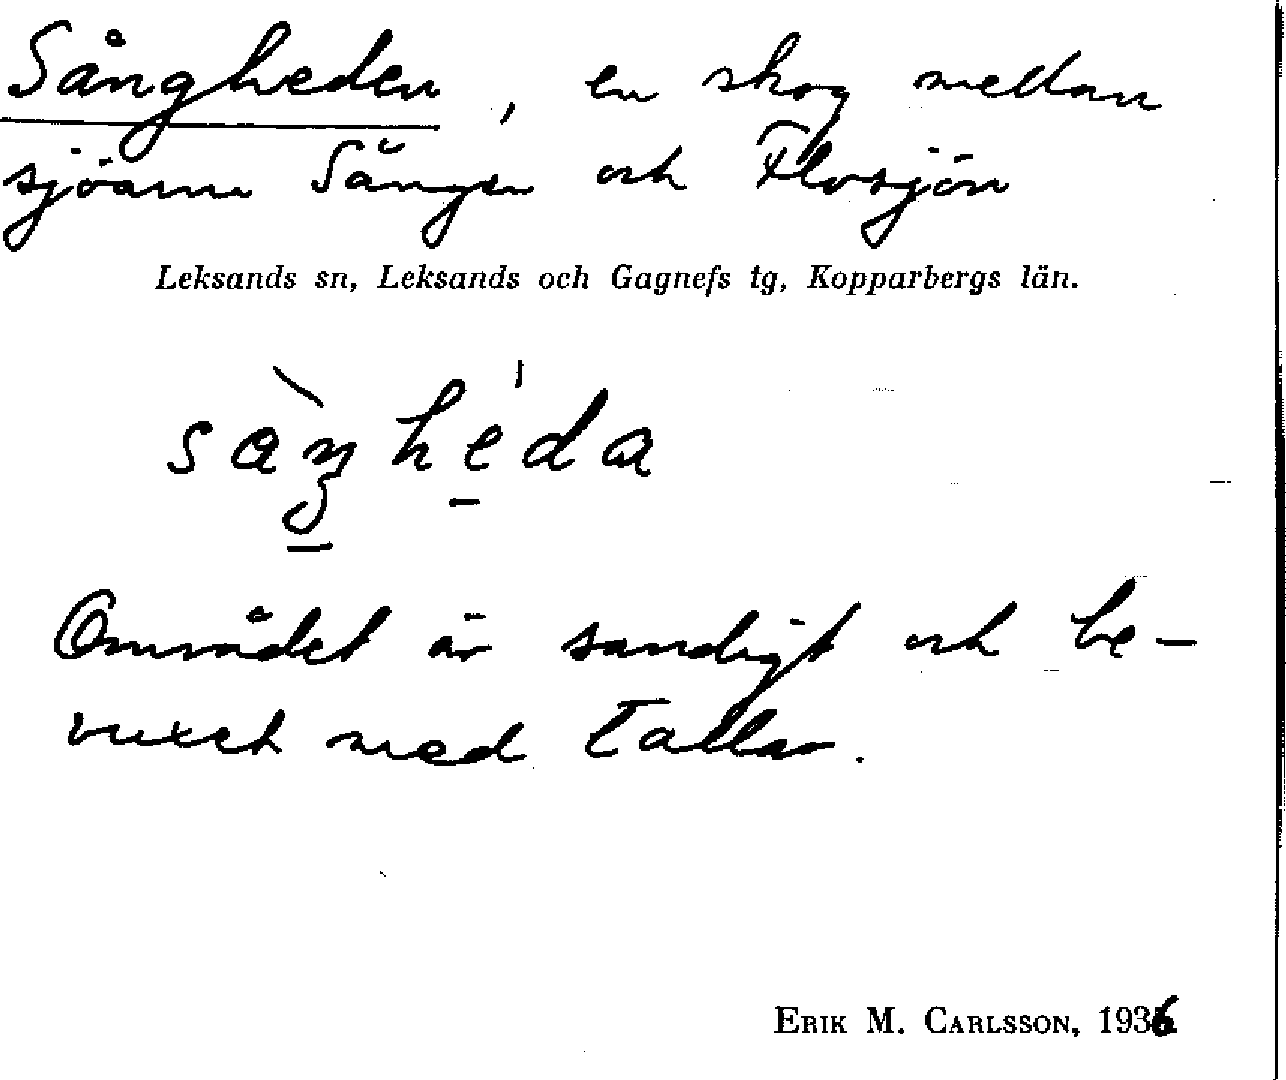 Sångheden, en skog mellan
sjöarna Sången och Flosjön
Leksands sn, Leksands och Gagnefs tg, Kopparbergs län.
sàŋhéda
Området är sandigt och be-
vuxet med tallar.
ERIK M. CARLSSON, 1936